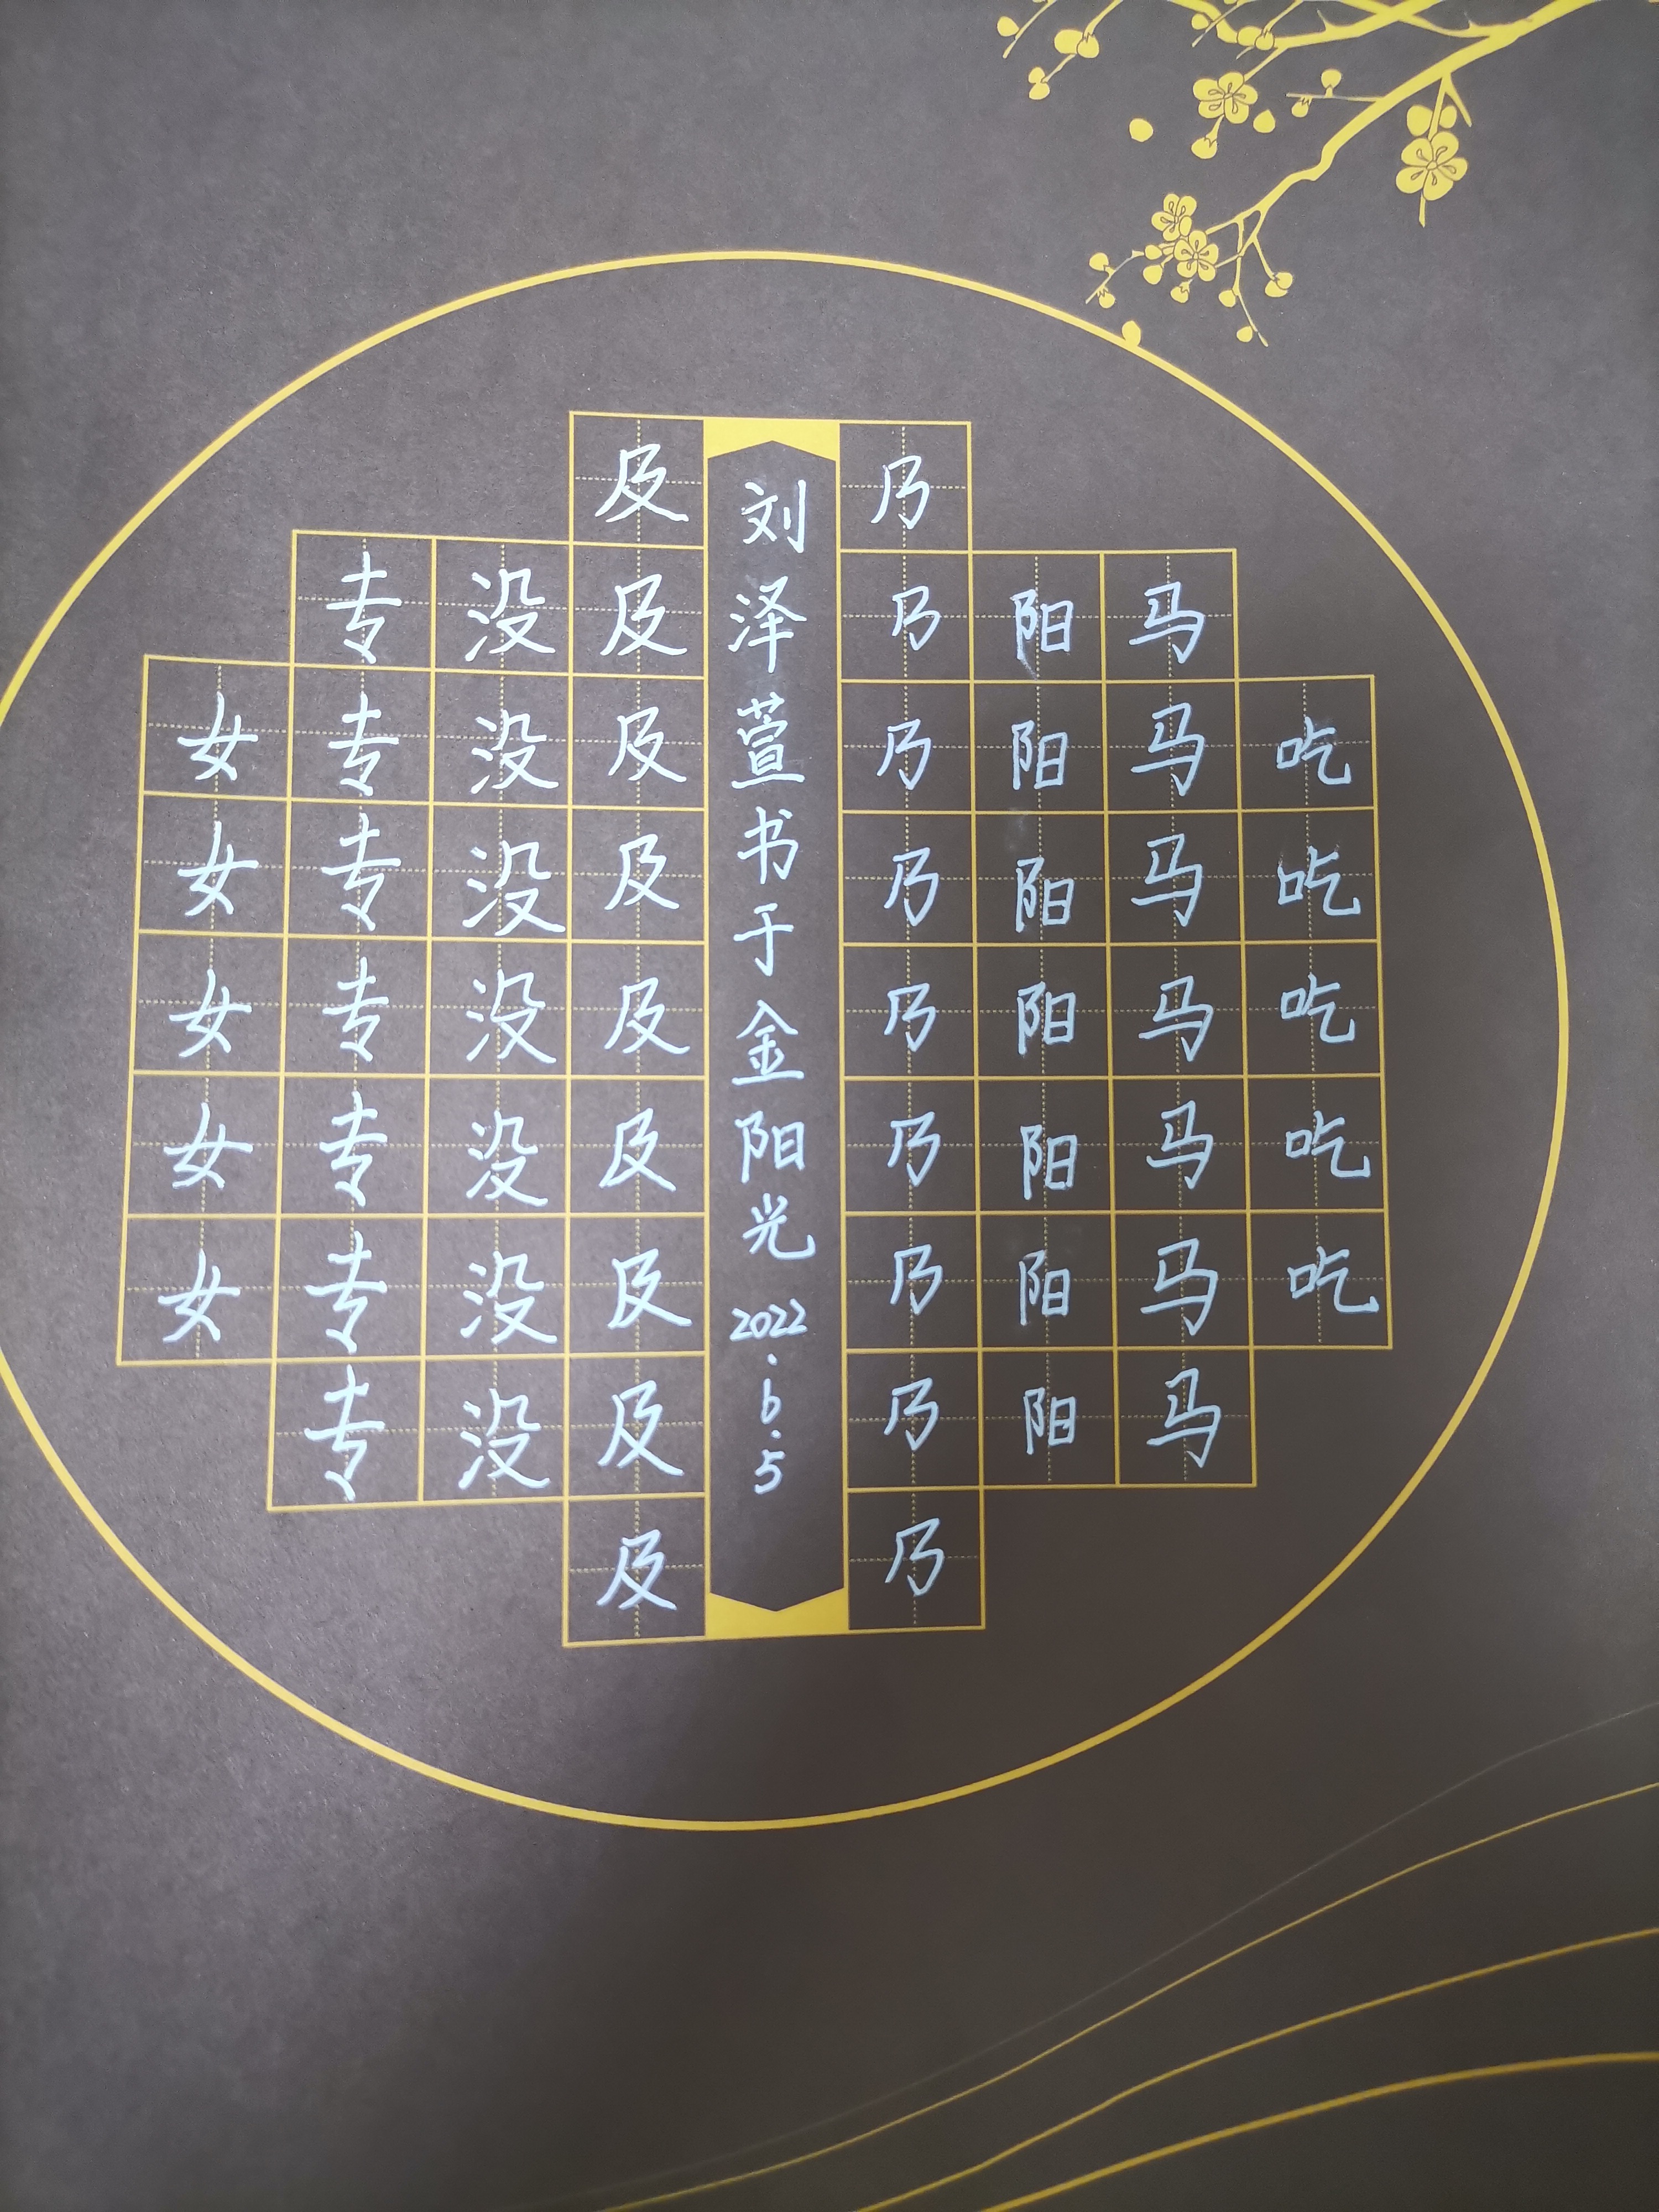 吃吃吃吃吃
马马马马马马马
阳阳阳阳阳阳阳
乃乃乃乃乃乃乃乃乃
刘泽萱书于金阳光 2022.6.5
及及及及及及及及及
没没没没没没没
专专专专专专专
女女女女女